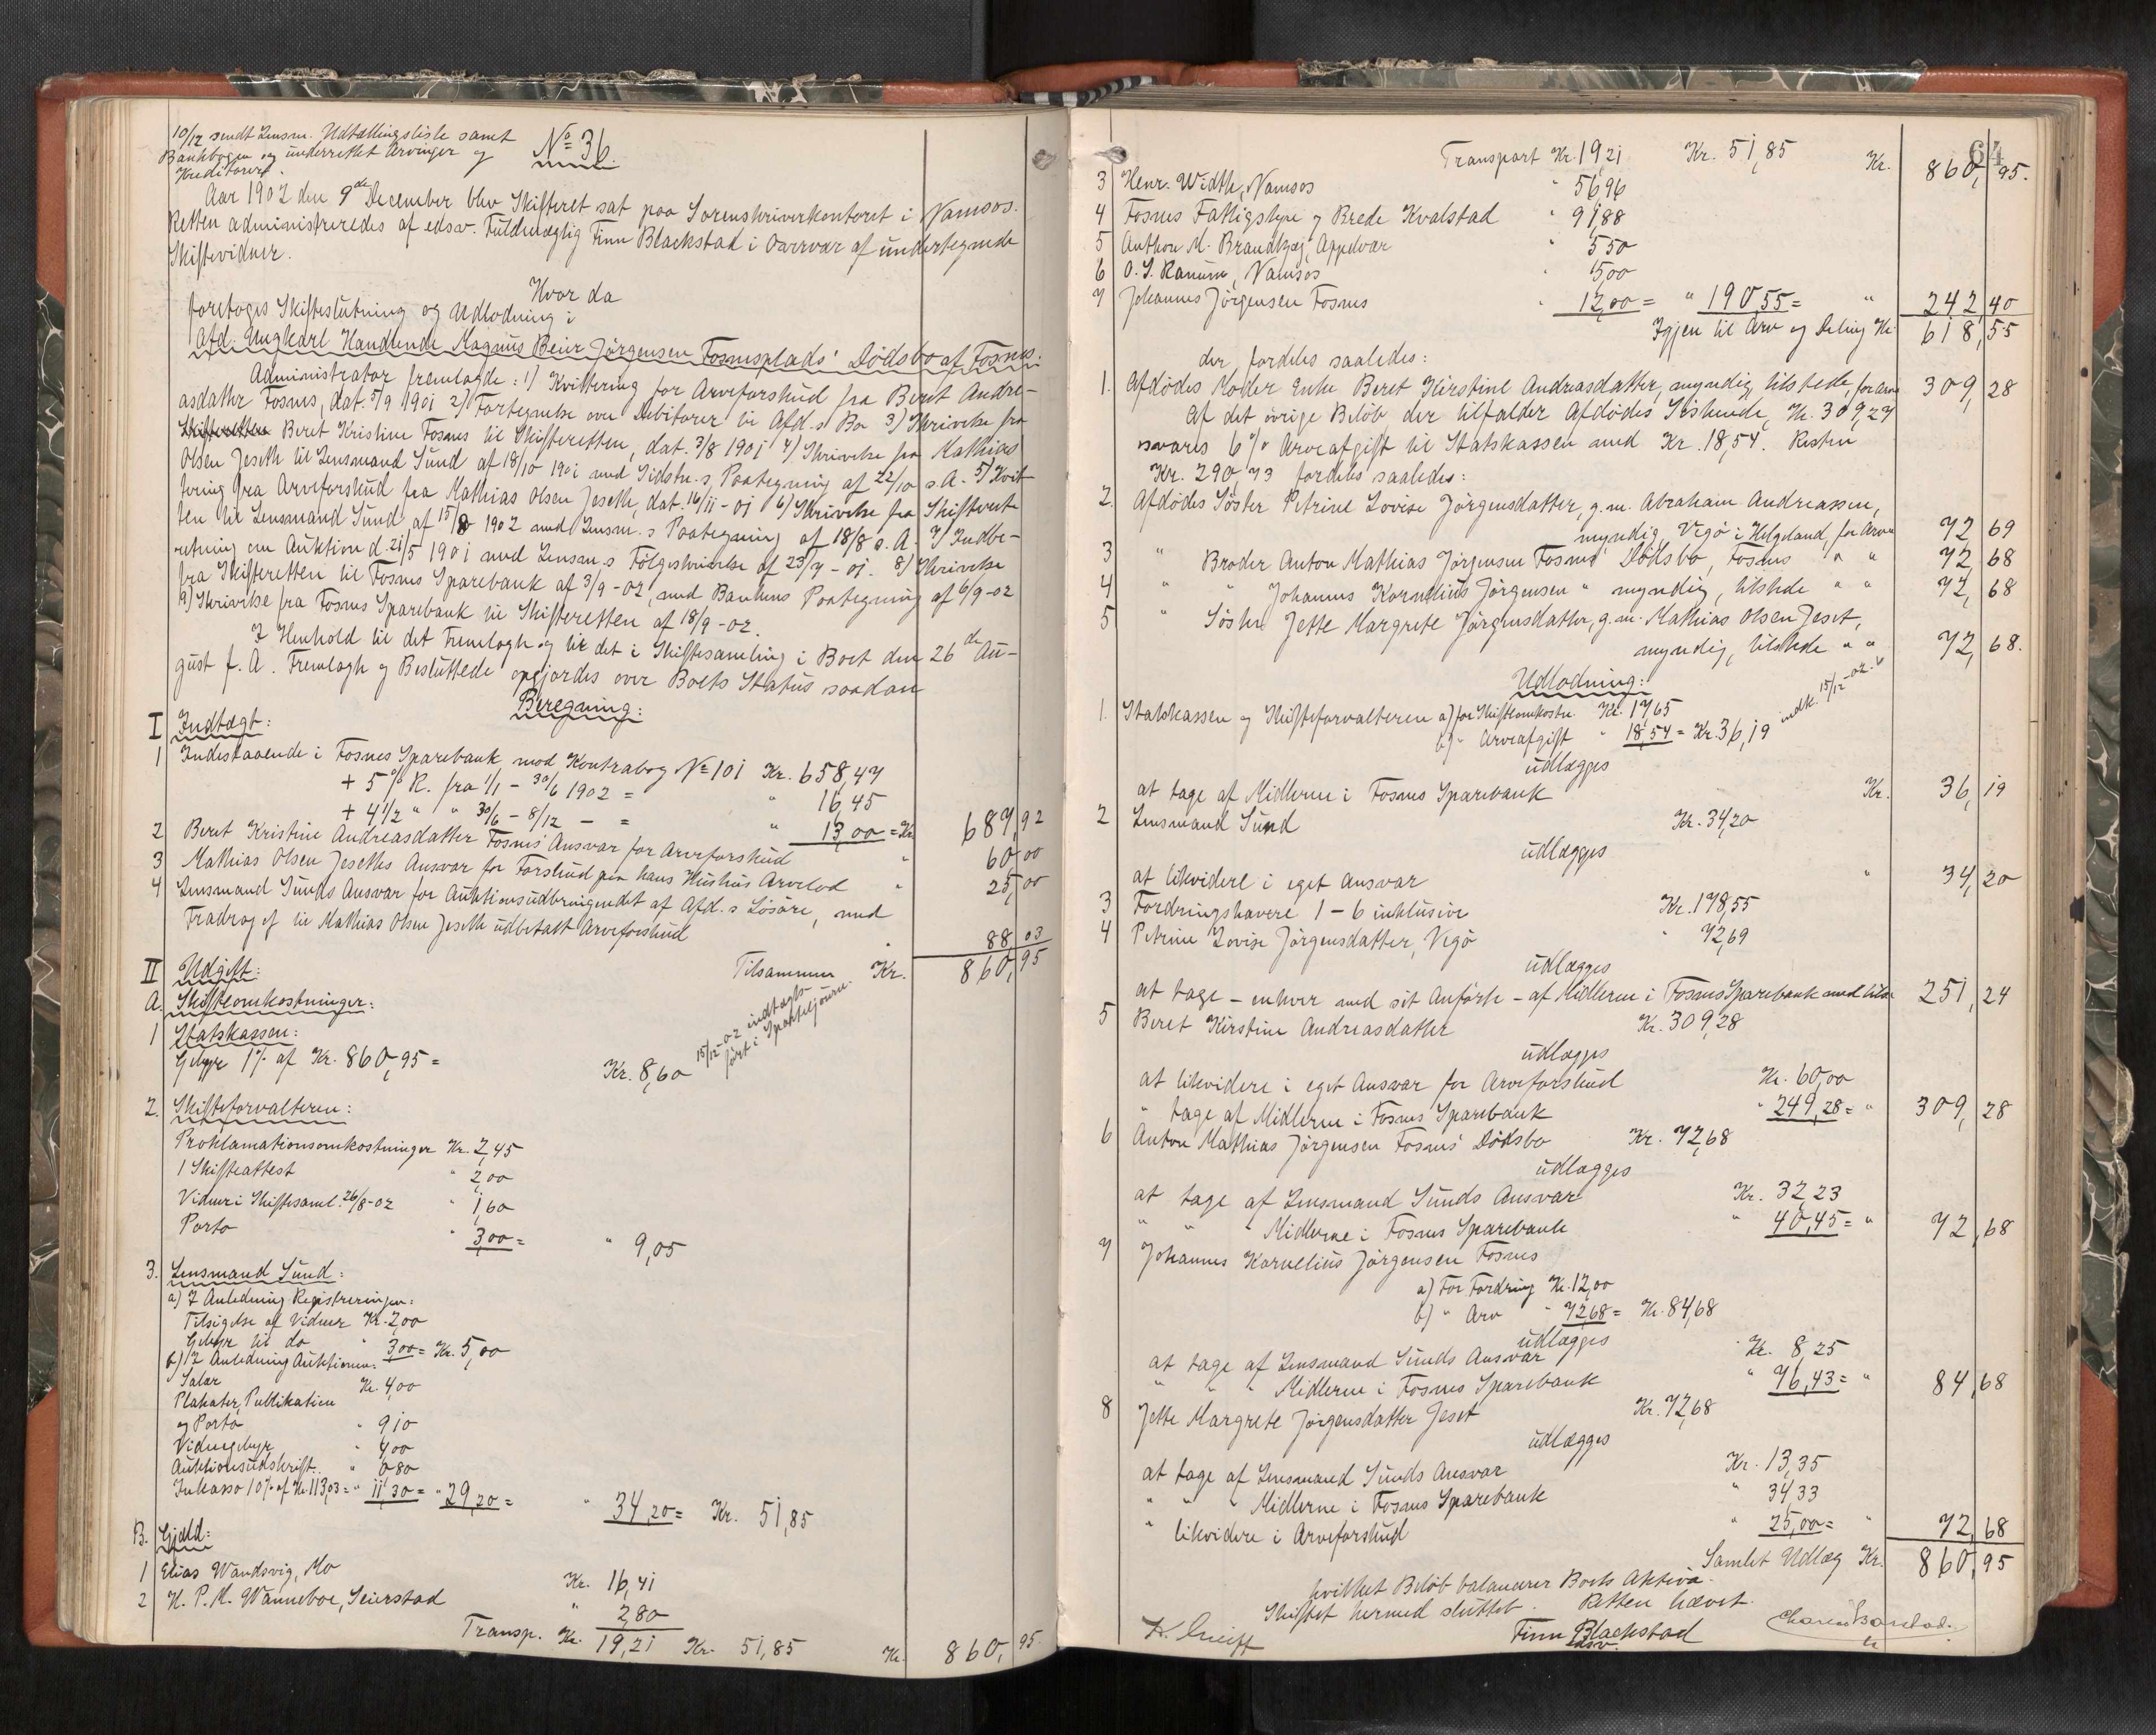 10/12 sendt Lensm. Udtællingsliste samt
Bankbogen og underrettet Arvinger og
Kreditorer.
No 36.
Aar 1902 den 9de December blev Skifteret sat paa Sorenskriverkontoret i Namsos.
Retten administreredes af edsv. Fuldmægtig Finn Blackstad i Overvær af undertegnede
Skiftevidner.
Hvor da
foretoges Skifteslutning og Udlodning i
Afd. Ungkarl Handlende Magnus Beier Jörgensen Fosnesplads' Dödsbo af Fosnes.
Administrator fremlagde: 1) Kvittering for Arveforskud fra Berit Andre-
asdatter Fosnes, dat. 5/9 1901 2) Fortegnelse over Debitorer til Afd.s Bo 3) Skrivelse fra
Skifteretten Beret Kristine Fosnes til Skifteretten, dat. 3/8 1901 4) Skrivelse fra Mathias
Olsen Jeseth til Lensmand Sund af 18/10 1901 med Sidstn.s Paategning af 22/10 s.A. 5) Kvit-
tering fra Arveforskud fra Mathias Olsen Jeseth, dat. 16/11-01 6) Skrivelse fra Skifteret-
ten til Lensmand Sund af 15/8 1902 med Lensm.s Paategning af 18/8 s.A. 7) Indbe-
retning om Auktion d. 21/5 1901 med Lensm.s Fölgeskrivelse af 23/7-01. 8) Skrivelse
fra Skifteretten til Fosnes Sparebank af 3/9-02, med Bankens Paategning af 6/9-02
9) Skrivelse fra Fosnes Sparebank til Skifteretten af 18/9-02.
I Henhold til det Fremlagte og til det i Skiftesamling i Boet den 26de Au-
gust f. A. Fremlagte og Besluttede opgjordes over Boets Status saadan
Beregning:
I Indtægt:
1 Indestaaende i Fosnes Sparebank mod Kontrabog No 101 Kr. 658,47
+ 5% R. fra 1/1 - 30/6 1902 = " 16,45
+ 4 1/2 " " 30/6 - 8/12 - = " 13,00 = Kr. 687,92
2 Beret Kristine Andreasdatter Fosnes' Ansvar for Arveforskud " 60,00
3 Mathias Olsen Jeseths Ansvar for Forskud paa hans Hustrus Arvelod " 25,00
4 Lensmand Sunds Ansvar for Auktionsudbringendet af Afd.s Lösöre, med
Fradrag af til Mathias Olsen Jeseth udbetalt Arveforskud " 88,03
Tilsammen Kr. 860,95
II Udgift:
A. Skifteomkostninger:
1 Statskassen:
Gebyr 1% af Kr. 860,95 = Kr. 8,60
15/12-02 indtægts-
ført i Sportseljourn.
2. Skifteforvalteren:
Proklamationsomkostninger Kr. 2,45
1 Skifteattest " 2,00
Vidner i Skiftesaml. 26/8-02 " 1,60
Porto " 3,00 = " 9,05
3. Lensmand Sund:
a) I Anledning Registreringen:
Tilsigelse af Vidner Kr. 2,00
Gebyr til do " 3,00 = Kr. 5,00
b) I Anledning Auktionen:
Salær Kr. 4,00
Plakater, Publikation
og Porto " 9,10
Vidnegebyr " 4,00
Auktionsudskrift " 0,80
Inkasso 10% af Kr. 113,03 = " 11,30 = " 29,20 = " 34,20 = Kr. 51,85
B. Gjæld:
1 Elias Wandsvig, Mo Kr. 16,41
2 H. P. M. Wanneboe, Seierstad " 2,80
Transp. Kr. 19,21 Kr. 51,85 Kr. 860,95
64
Transport Kr. 19,21 Kr. 51,85 Kr. 860,95.
3 Henr. Width, Namsos " 56,96
4 Fosnes Fattigstyre og Brede Kvalstad " 91,88
5 Anthon M. Brandtzæg, Appelvær " 5,50
6 O. S. Ranum, Namsos " 5,00
7 Johannes Jörgensen Fosnes " 12,00 = " 190,55 = " 242,40
Igjen til Arv og Deling Kr. 618,55
der fordeles saaledes:
1. Afdödes Moder Enke Beret Kirstine Andreasdatter, myndig, tilstede, for Arv 309,28
Af det övrige Belöb, der tilfalder Afdödes Söskende, Kr. 309,27
svares 6% Arveafgift til Statskassen med Kr. 18,54. Resten
Kr. 290,73 fordeles saaledes:
2. Afdödes Söster Petrine Lovise Jörgensdatter, g.m. Abraham Andreassen,
myndig, Vegö i Helgeland, for Arv 72,69
3 " Broder Anton Mathias Jörgensen Fosnes' Dödsbo, Fosnes " " 72,68
4 " " Johannes Kornelius Jörgensen " myndig, tilstede " " 72,68
5 " Söster Jette Margrete Jörgensdatter, g.m. Mathias Olsen Jeset,
myndig, tilstede " " 72,68.
Udlodning:
1. Statskassen og Skifteforvalteren a) for Skifteomkostn. Kr. 17,65
b) " Arveafgift " 18,54 = Kr. 36,19 indk. 15/12-02.
udlægges
at tage af Midlerne i Fosnes Sparebank Kr. 36,19
2 Lensmand Sund Kr. 34,20
udlægges
at likvidere i eget Ansvar " 34,20
3 Fordringshavere 1-6 inklusive Kr. 178,55
4 Petrine Lovise Jörgensdatter, Vegö " 72,69
udlægges
at tage - enhver med sit Anförte - af Midlerne i Fosnes Sparebank med tils. 251,24
5 Beret Kirstine Andreasdatter Kr. 309,28
udlægges
at likvidere i eget Ansvar for Arveforskud Kr. 60,00
" tage af Midlerne i Fosnes Sparebank " 249,28 = " 309,28
6 Anton Mathias Jörgensen Fosnes' Dödsbo Kr. 72,68
udlægges
at tage af Lensmand Sunds Ansvar Kr. 32,23
" " " Midlerne i Fosnes Sparebank " 40,45 = " 72,68
7 Johannes Kornelius Jörgensen Fosnes
a) For Fordring Kr. 12,00
b) " Arv " 72,68 = Kr. 84,68
udlægges
at tage af Lensmand Sunds Ansvar Kr. 8,25
" " " Midlerne i Fosnes Sparebank " 76,43 = " 84,68
8 Jette Margrete Jörgensdatter Jeset Kr. 72,68
udlægges
at tage af Lensmand Sunds Ansvar Kr. 13,35
" " " Midlerne i Fosnes Sparebank " 34,33
" likvidere i Arveforskud " 25,00 = " 72,68
Samlet Udlæg Kr. 860,95
hvilket Belöb balancerer Boets Aktiva.
Skiftet hermed sluttet. Retten hævet.
Finn Blackstad
edsv.